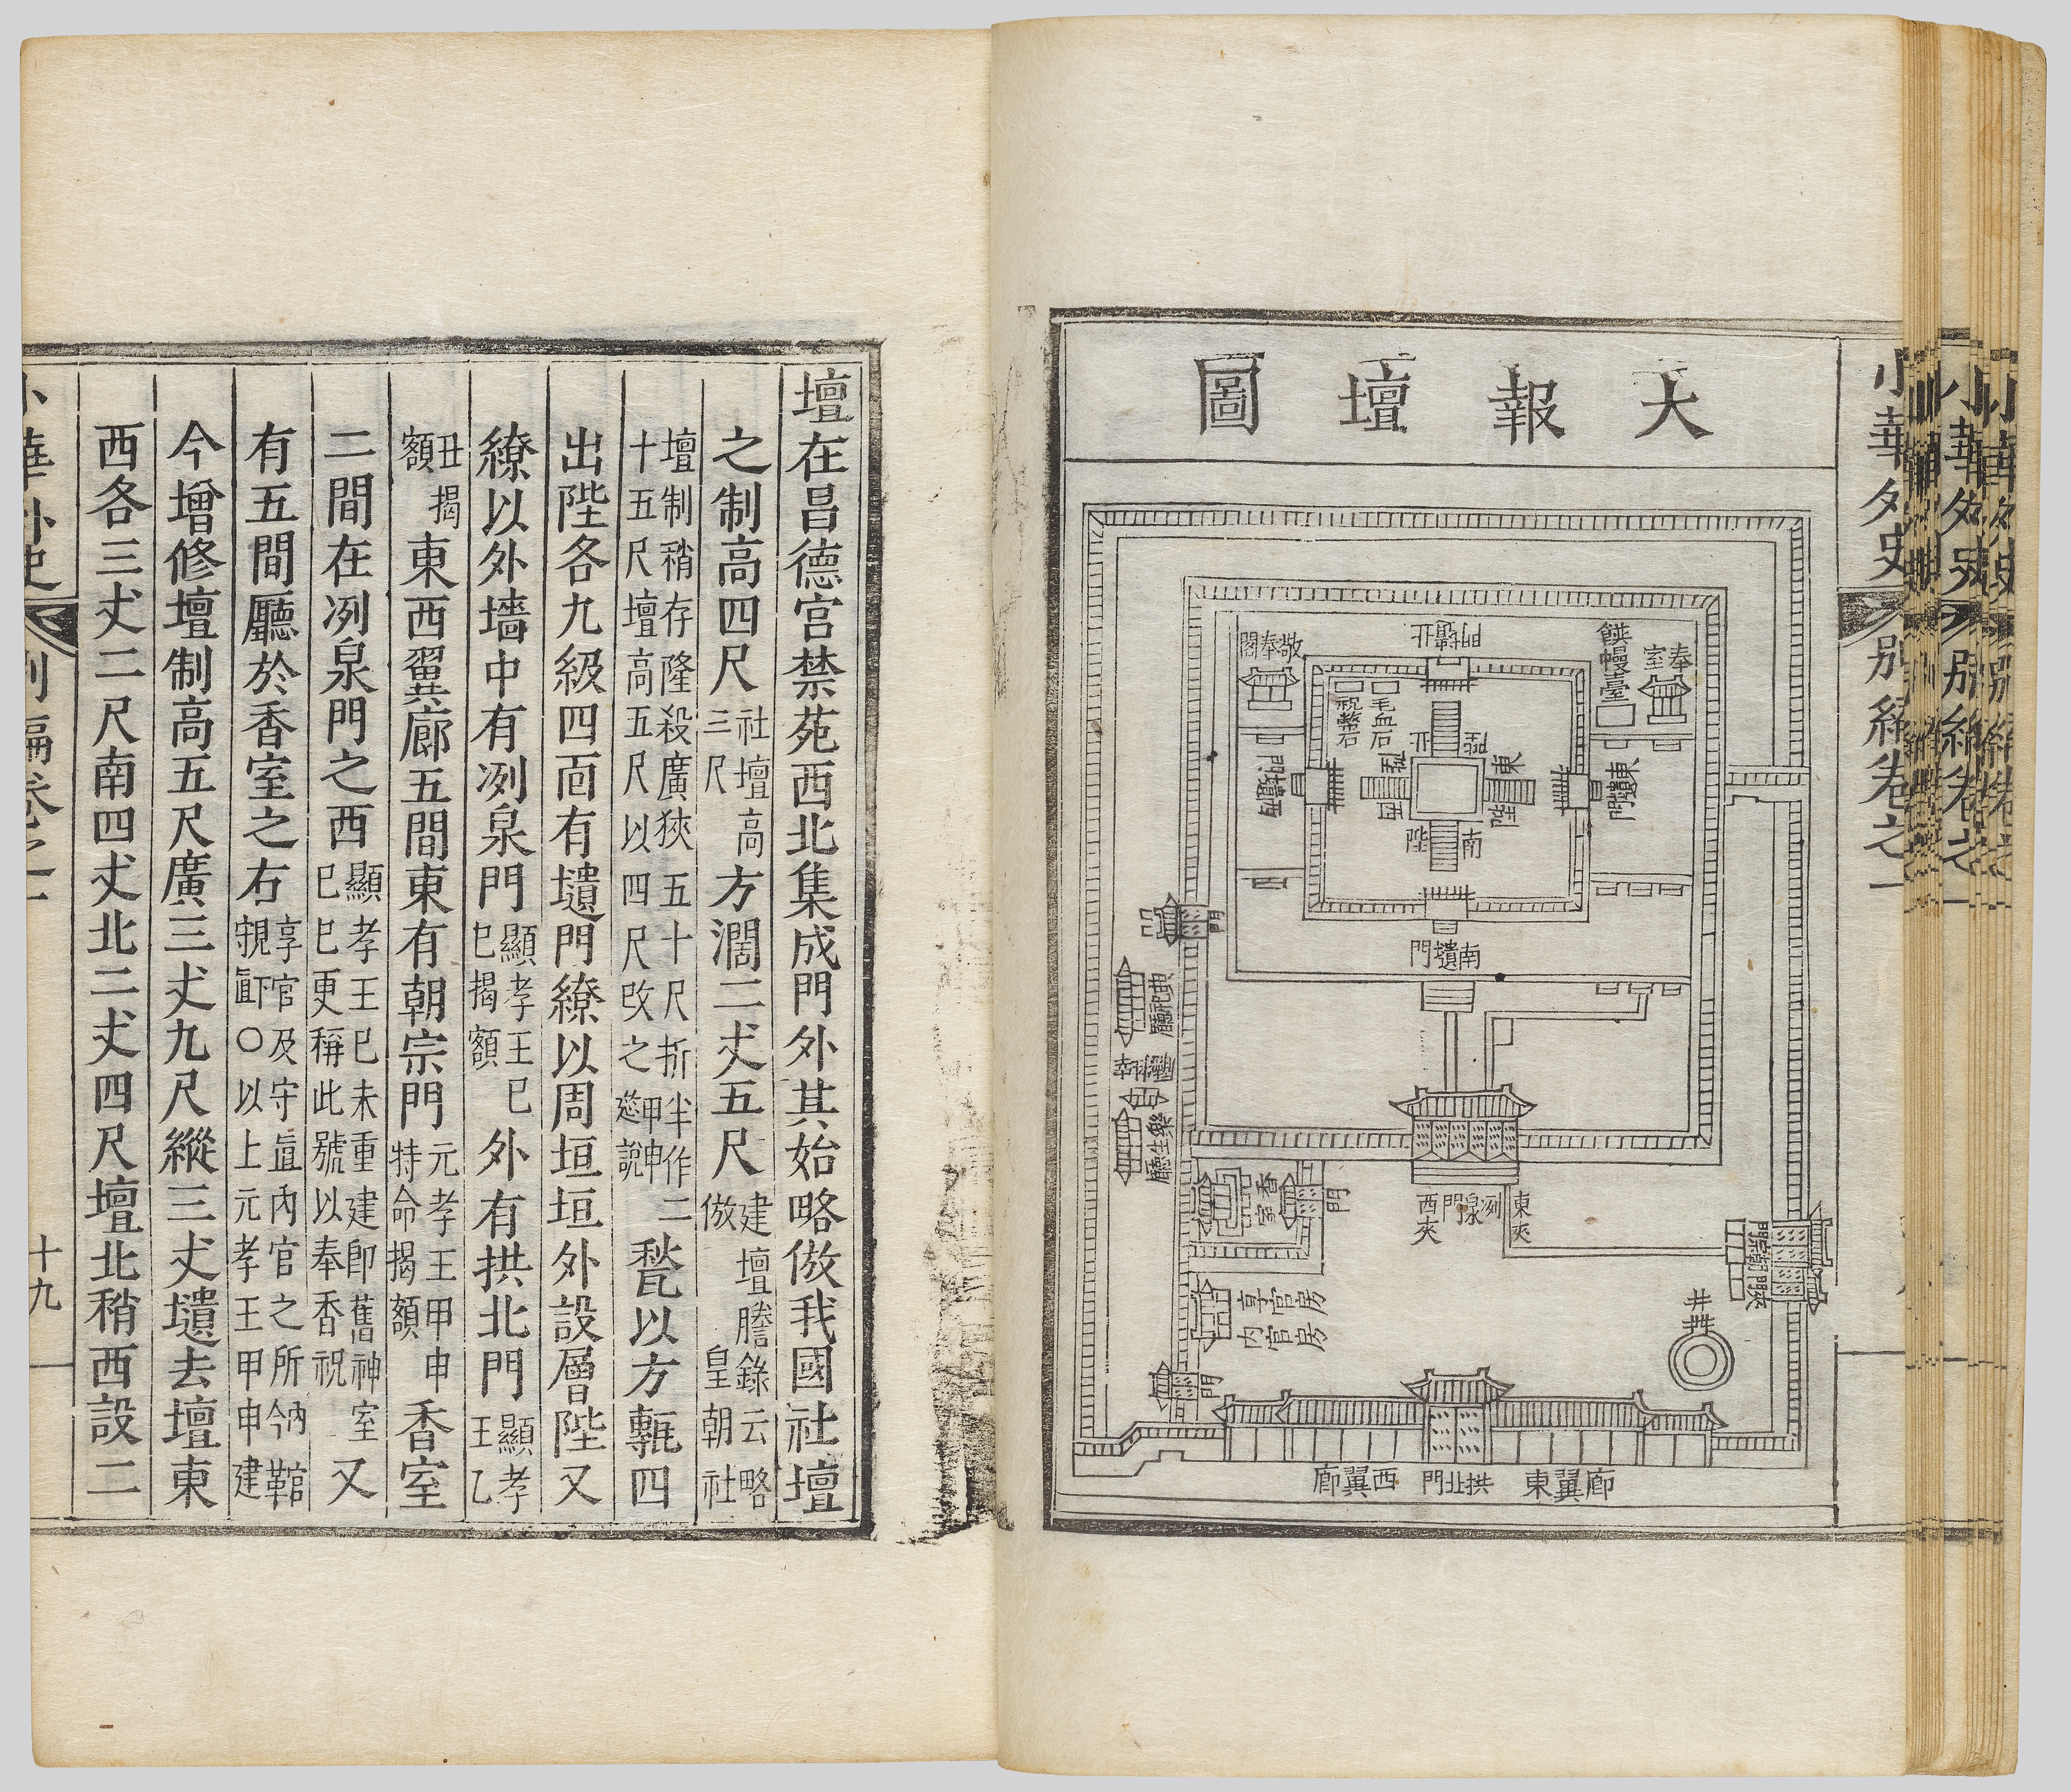 小華外史 別編卷之一
大報壇圖
奉室
饌幔臺
北壝門
敬奉閣
毛血石
祝幣石
北陛
東陛
西陛
南陛
東壝門
西壝門
南壝門
門
典祀廳
樂生廳
香室
門
東夾
冽泉門
西夾
朝宗門
夾門
享官房
內官房
井
門
東翼廊
拱北門
西翼廊
壇在昌德宮禁苑西北集成門外其始略倣我國社壇
之制高四尺社壇高三尺方濶二丈五尺建壇謄錄云略倣皇朝社
壇制稍存隆殺廣狹五十尺折半作二十五尺壇高五尺以四尺改之甲申筵說甃以方甎四
出陛各九級四面有壝門繚以周垣垣外設層陛又
繚以外墻中有冽泉門顯孝王己巳揭額外有拱北門顯孝王乙
丑揭額東西翼廊五間東有朝宗門元孝王甲申特命揭額香室
二間在冽泉門之西顯孝王己未重建卽舊神室己巳更稱此號以奉香祝又
有五間廳於香室之右享官及守直內官之所今○以上元孝王甲申建
今增修壇制高五尺廣三丈九尺縱三丈壝去壇東
西各三丈二尺南四丈北二丈四尺壇北稍西設二
小華外史 別編卷之一 十九